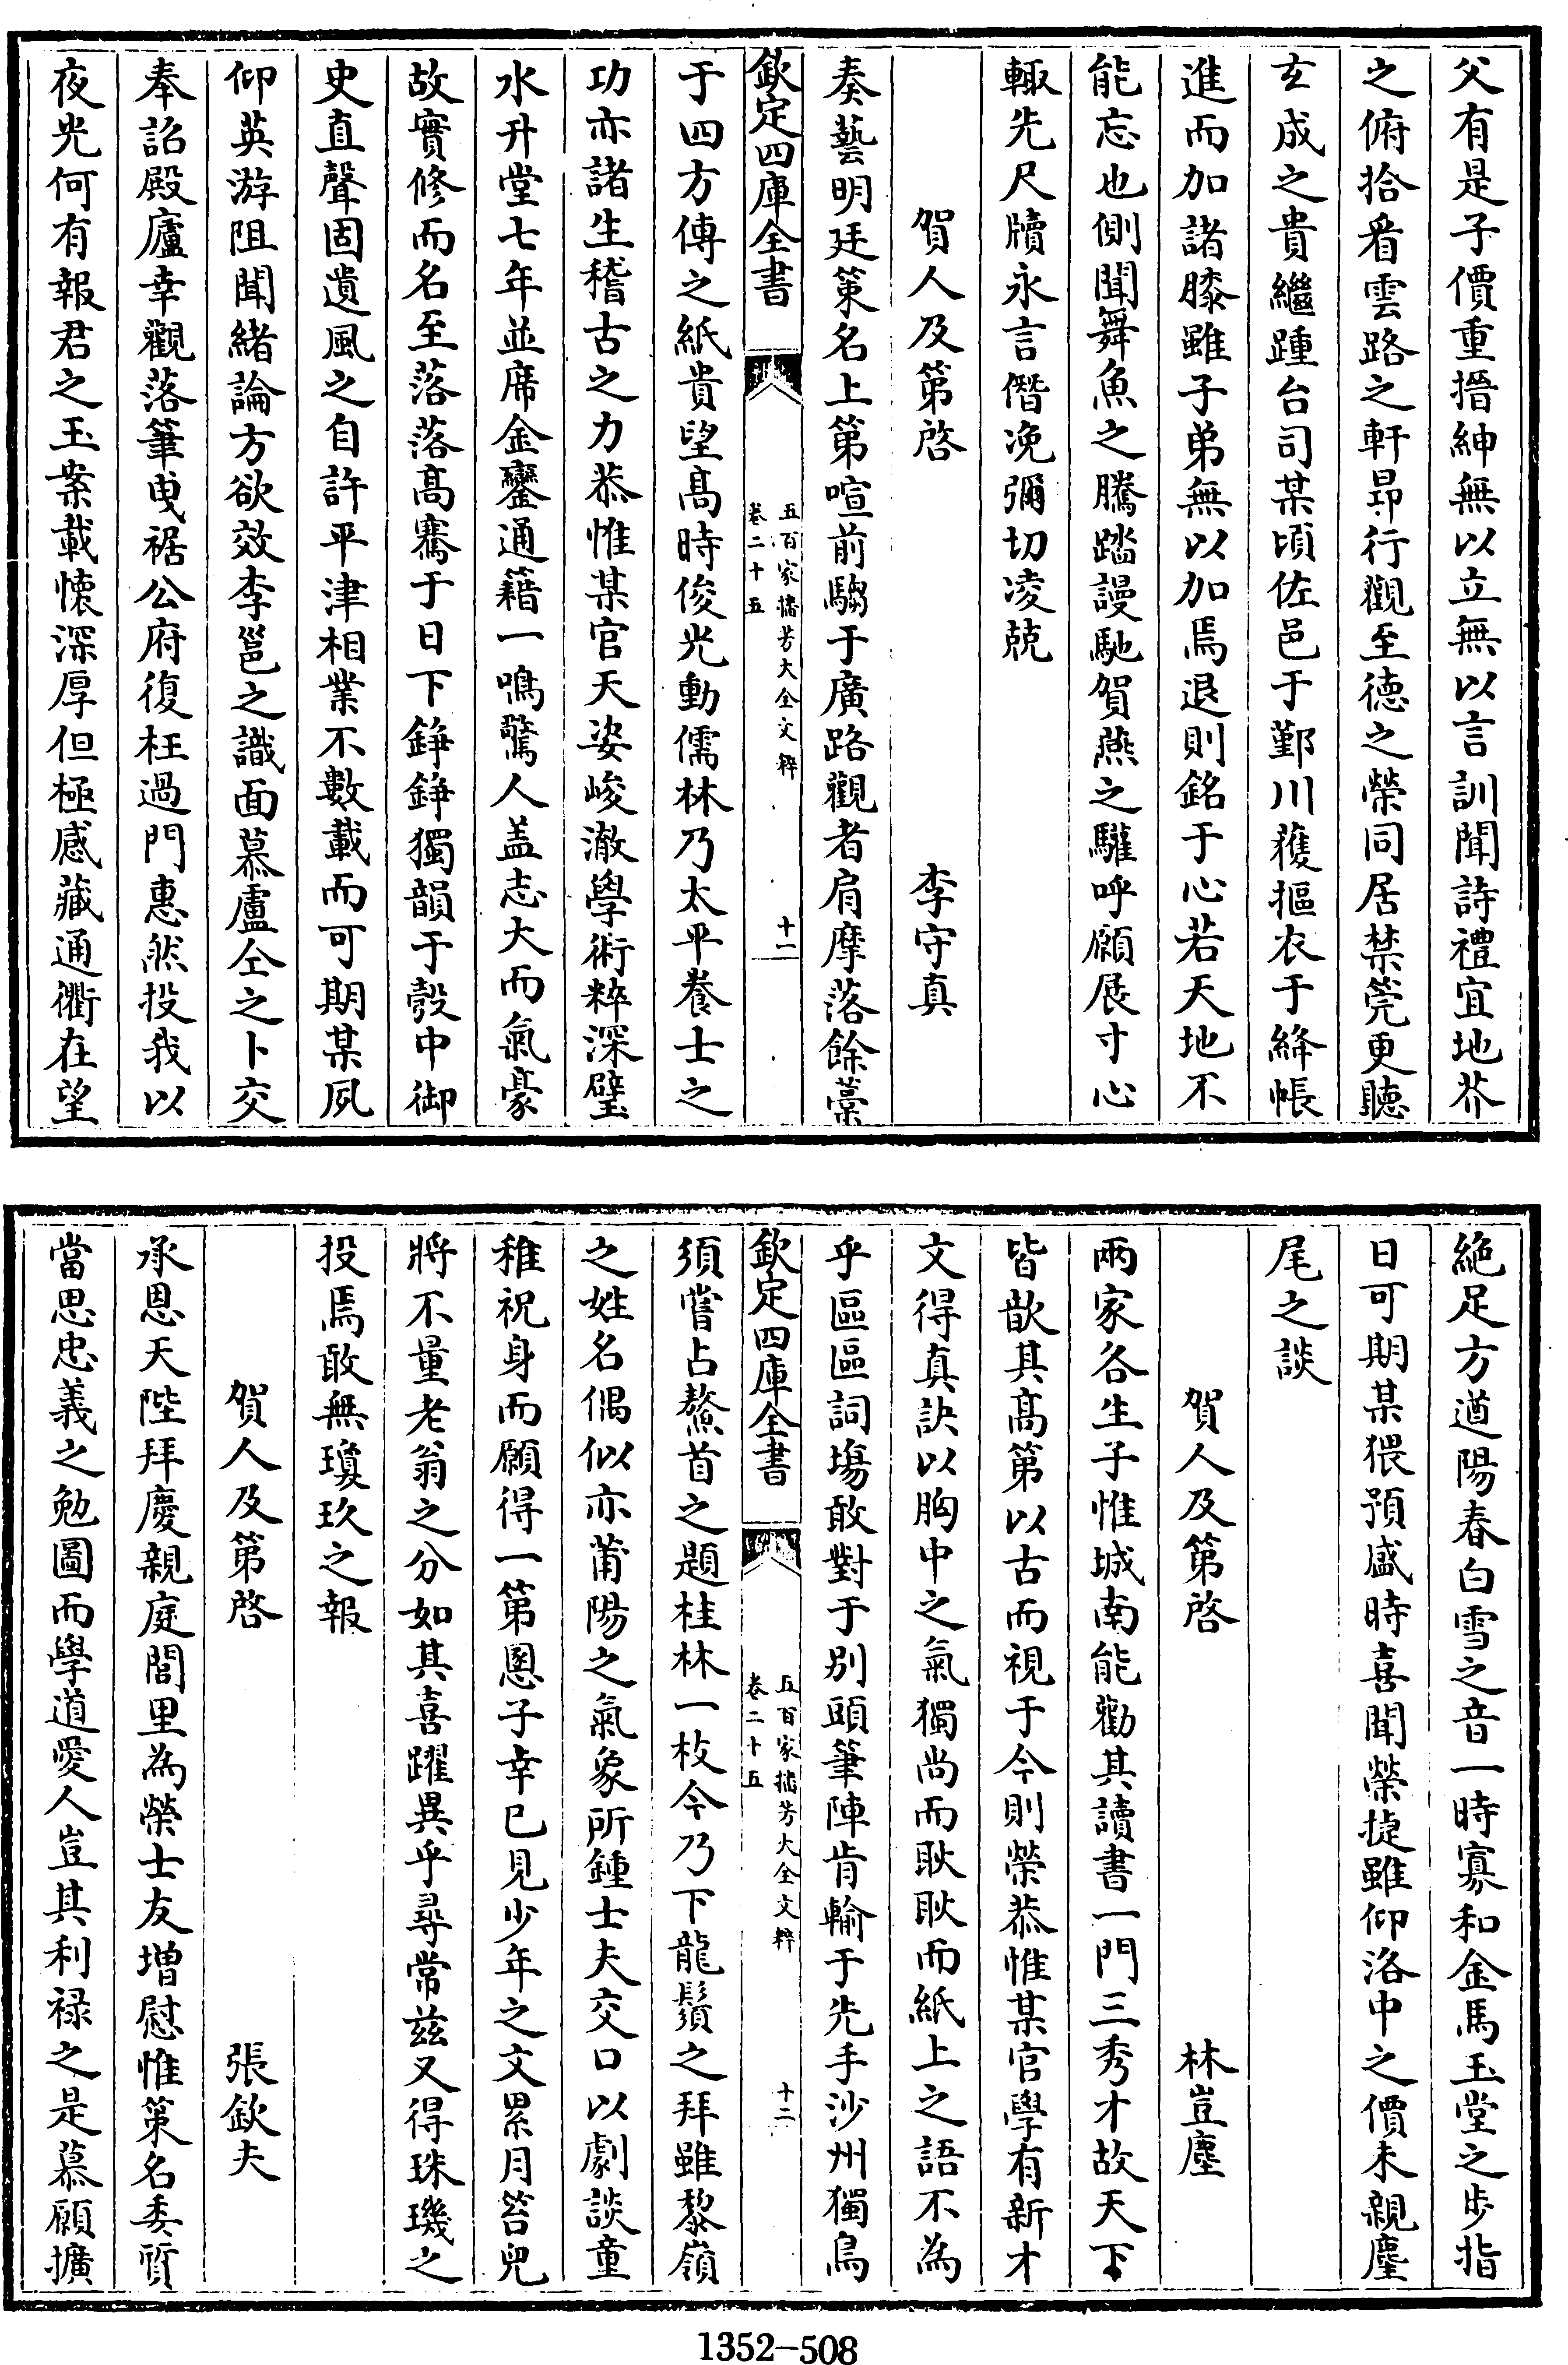 父有是子價重搢紳無以立無以言訓聞詩禮宜地芥
之俯拾看雲路之軒昻行觀至德之榮同居禁筦更聽
玄成之貴繼踵台司某頃佐邑于鄞川獲摳衣于絳帳
進而加諸膝雖子弟無以加焉退則銘于心若天地不
能忘也側聞舞魚之騰踏謾馳賀燕之驩呼願展寸心
輙先尺牘永言僭凂彌切凌兢
賀人及第啓 李守真
奏藝明廷策名上第喧前騶于廣路觀者肩摩落餘藁
欽定四庫全書
五百家播芳大全文粹
卷二十五
十一
于四方傳之紙貴望髙時俊光動儒林乃太平養士之
功亦諸生稽古之力恭惟某官天姿峻澈學術粹深璧
水升堂七年並席金鑾通籍一鳴驚人盖志大而氣豪
故實修而名至落落髙騫于日下錚錚獨韻于彀中御
史直聲固遺風之自許平津相業不數載而可期某夙
仰英游阻聞緒論方欲效李邕之識面慕盧仝之卜交
奉詔殿廬幸觀落筆曳裾公府復枉過門惠然投我以
夜光何有報君之玉案載懐深厚但極感藏通衢在望
絶足方遒陽春白雪之音一時寡和金馬玉堂之步指
日可期某猥預盛時喜聞榮捷雖仰洛中之價未親麈
尾之談
賀人及第啓 林豈塵
兩家各生子惟城南能勸其讀書一門三秀才故天下
皆歆其髙第以古而視于今則榮恭惟某官學有新才
文得真訣以胸中之氣獨尚而耿耿而紙上之語不為
乎區區詞塲敢對于别頭筆陣肯輸于先手沙州獨鳥
欽定四庫全書
五百家播芳大全文粹
卷二十五
十二
須嘗占鰲首之題桂林一枚今乃下龍鬚之拜雖黎嶺
之姓名偶似亦莆陽之氣象所鍾士夫交口以劇談童
稚祝身而願得一第恩子幸已見少年之文累月笞兒
將不量老翁之分如其喜躍異乎尋常兹又得珠璣之
投焉敢無瓊玖之報
賀人及第啓 張欽夫
承恩天陛拜慶親庭閭里為榮士友增慰惟策名委質
當思忠義之勉圖而學道愛人豈其利禄之是慕願擴
1352-508